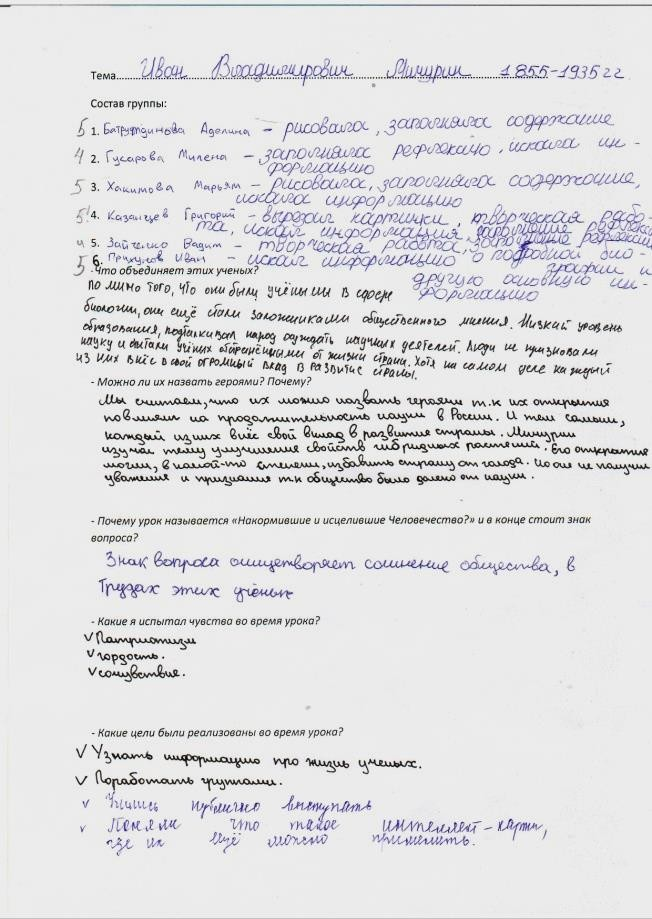 Тема Иван Владимирович Мичурин 1855-1935 гг
Состав группы:
5 1. Батрутдинова Аделина – рисовала, заполняла содержание
4 2. Гусарова Милена – заполняла рефлексию, искала ин-
формацию
5 3. Хакимова Марьям – рисовала, заполняла содержание,
искала информацию
5 4. Казанцев Григорий – вырезал картинки, творческая рабо-
та, искал информация, заполнение рефлексии
4 5. Зайченко Вадим – творческая работа, заполнение рефлексии
5 6. Прихунов Иван – искал информацию о подробной био-
графии и
другую основную ин-
формацию
- Что объединяет этих ученых?
По мимо того, что они были учёными в сфере
биологии, они ещё стали заложниками общественного мнения. Низкий уровень
образования, подталкивал народ осуждать научных деятелей. Люди не признавали
науку и считали учёных отстранёнными от жизни страны. Хотя на самом деле каждый
из них внёс в свой огромный вклад в развитие страны.
- Можно ли их назвать героями? Почему?
Мы считаем, что их можно назвать героями т.к их открытия
повлияли на продолжительность нации в России. И тем самым,
каждый из них внёс свой вклад в развитие страны. Мичурин
изучал тему улучшения свойств гибридных растений. Его открытия
могли, в какой-то степени, избавить страну от голода. Но он не получил
уважения и признания т.к общество было далеко от науки.
- Почему урок называется «Накормившие и исцелившие Человечество?» и в конце стоит знак
вопроса?
Знак вопроса олицетворяет сомнение общества, в
трудах этих учёных
- Какие я испытал чувства во время урока?
✓ Патриотизм
✓ гордость.
✓ сочувствие.
- Какие цели были реализованы во время урока?
✓ Узнать информацию про жизнь ученых.
✓ Поработать группами.
✓ Учились публично выступать
✓ Поняли что такое интеллект-карты,
где их ещё можно применить.